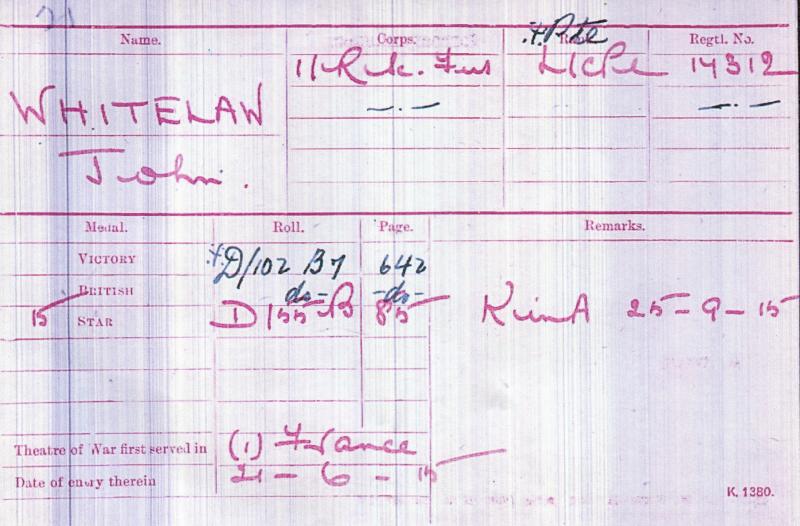 Name. Corps. Rank. Regtl. No.
WHITELAW 11/R. Sc. Fus L/Cpl 14312
John. ‡Pte
Medal. Roll. Page. Remarks.
VICTORY D/102 B7 642
BRITISH -do- -do-
15 STAR D/55 B 85 K in A 25-9-15
Theatre of War first served in (1) France
Date of entry therein 21-6-15
K. 1380.